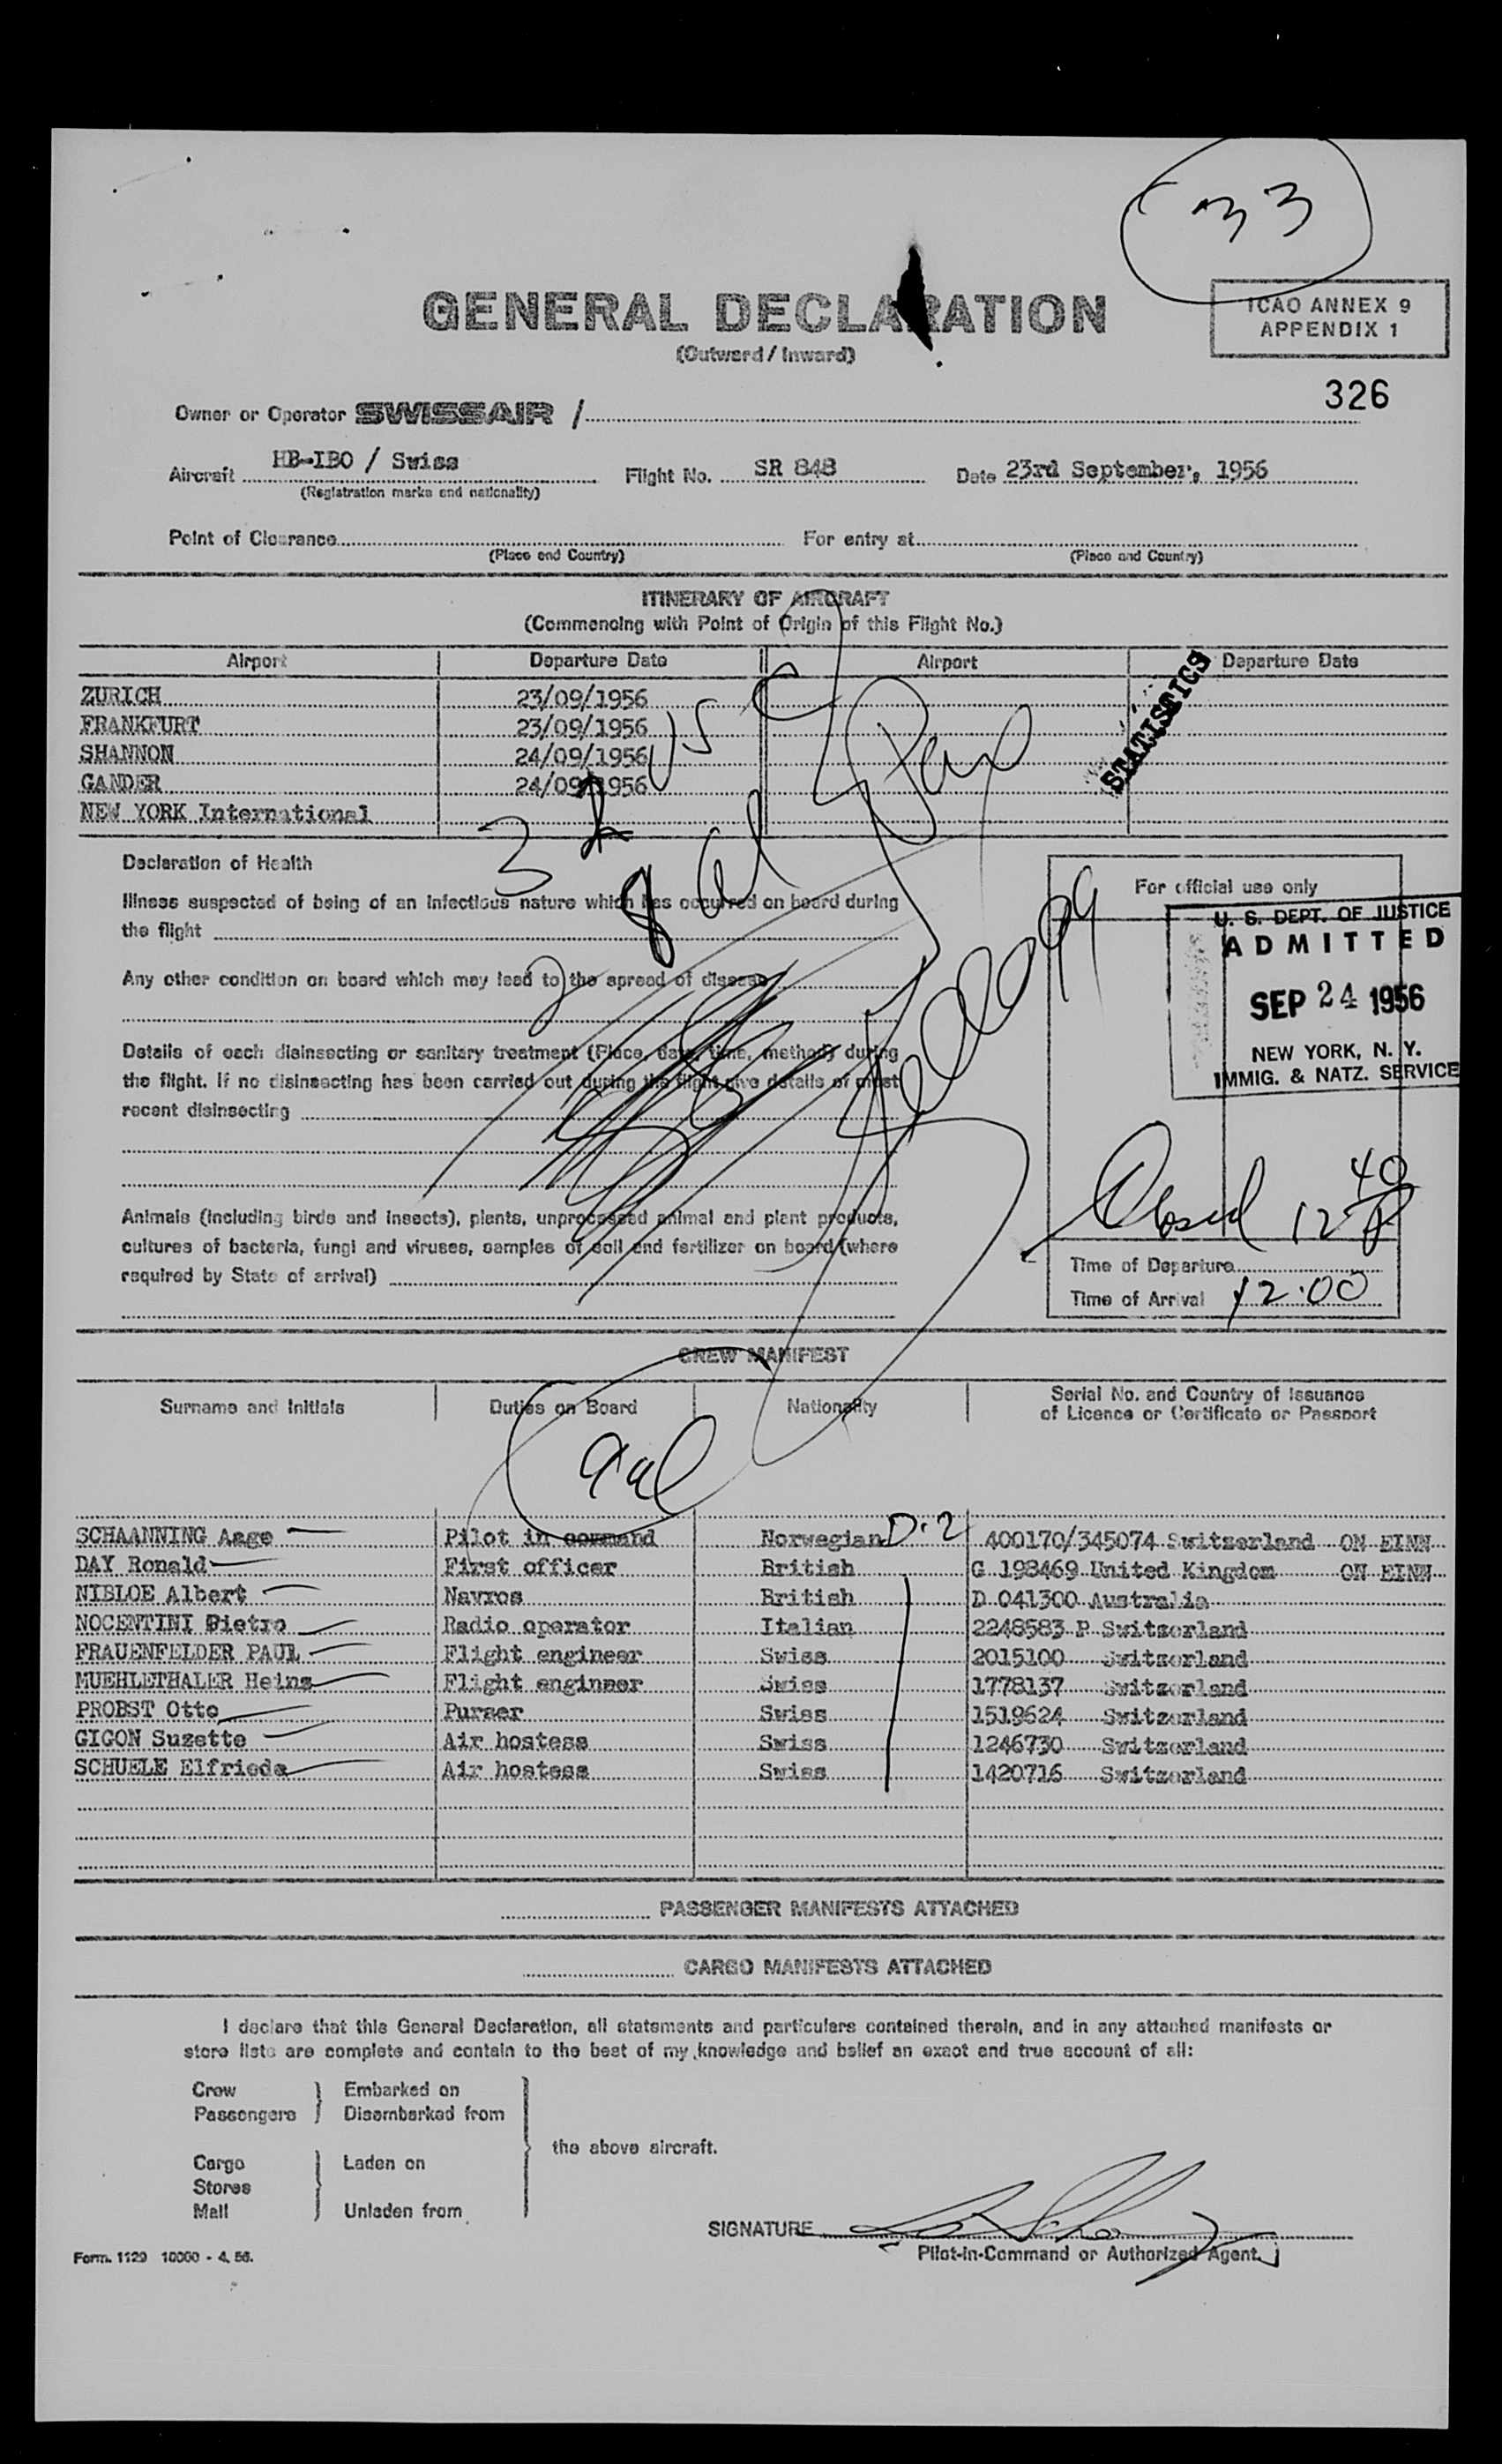 33
GENERAL DECLARATION
(Outward / Inward)
ICAO ANNEX 9
APPENDIX 1
326
Owner or Operator SWISSAIR /
Aircraft HB-IBO / Swiss Flight No. SR 848 Date 23rd September, 1956
(Registration marks and nationality)
Point of Clearance For entry at
(Place and Country) (Place and Country)
ITINERARY OF AIRCRAFT
(Commencing with Point of Origin of this Flight No.)
Airport Departure Date Airport Departure Date
ZURICH 23/09/1956
FRANKFURT 23/09/1956
SHANNON 24/09/1956
GANDER 24/09/1956
NEW YORK International
STATISTICS
3 USC
8 al
Declaration of Health
Illness suspected of being of an infectious nature which has occurred on board during
the flight
Any other condition on board which may lead to the spread of disease
Details of each disinsecting or sanitary treatment (Place, date, time, method) during
the flight. If no disinsecting has been carried out during the flight give details of most
recent disinsecting
Animals (including birds and insects), plants, unprocessed animal and plant products,
cultures of bacteria, fungi and viruses, samples of soil and fertilizer on board (where
required by State of arrival)
For official use only
U. S. DEPT. OF JUSTICE
ADMITTED
SEP 24 1956
NEW YORK, N. Y.
IMMIG. & NATZ. SERVICE
Closed 12 40 P
Time of Departure
Time of Arrival 12:00
CREW MANIFEST
Surname and Initials Duties on Board Nationality Serial No. and Country of Issuance
of Licence or Certificate or Passport
9 al
SCHAANNING Aage Pilot in command Norwegian D-2 400170/345074 Switzerland ON EINN
DAY Ronald First officer British G 198469 United Kingdom ON EINN
NIBLOE Albert Navros British D 041300 Australia
NOCENTINI Pietro Radio operator Italian 2248583 P Switzerland
FRAUENFELDER PAUL Flight engineer Swiss 2015100 Switzerland
MUEHLETHALER Heinz Flight enginner Swiss 1778137 Switzerland
PROBST Otto Purser Swiss 1519624 Switzerland
GIGON Suzette Air hostess Swiss 1246730 Switzerland
SCHUELE Elfriede Air hostess Swiss 1420716 Switzerland
PASSENGER MANIFESTS ATTACHED
CARGO MANIFESTS ATTACHED
I declare that this General Declaration, all statements and particulars contained therein, and in any attached manifests or
store lists are complete and contain to the best of my knowledge and belief an exact and true account of all:
Crew Embarked on
Passengers Disembarked from
the above aircraft.
Cargo Laden on
Stores
Mail Unladen from
SIGNATURE
Pilot-in-Command or Authorized Agent
Form. 1129 10000 - 4. 56.